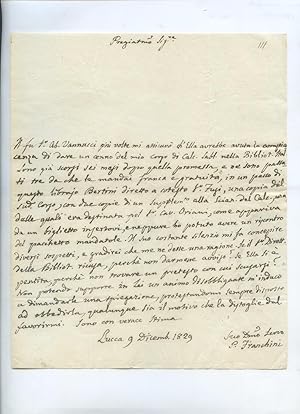 Pregiatmo Sigre
Il fu Sr. Ab. Vannucci più volte mi assicurò ch'Ella avrebbe avuta la compia
cenza di dare un cenno del mio Corso di Calc. Subl. nella Bibliot. Ital.
Sono già scorsi sei mesi dopo quella promessa, e ne sono passa
ti tre da che le mandai franca e gratuita, in un pacco di
questo librajo Bertini diretto a cotesto Sr. Fusi, una copia del
sud. Corso, con due copie di un Supplem. alla Scien. del Calc. una
dalle quali era destinata pel Sr. Cav. Oriani, come appariva
da un biglietto insertovi, e neppure ho potuto avere un riscontro
del pacchetto mandatole. Il suo costante silenzio mi fa concepire
diversi sospetti, e gradirei che me ne desse una ragione. Se il Sr. Dirett.
della Bibliot. ricusa, perchè non darmene avviso? Se Ella si è
pentito, perchè non trovare un pretesto con cui scusarsi?
Non potendo supporre in Lei un animo disobbligante m'induco
a dimandarle una spiegazione, protestandomi sempre disposto
ad obbedirla, qualunque sia il motivo che la distoglie dal
favorirmi. Sono con verace stima
Lucca 9 Dicemb. 1829
Suo Dmo Servo
P. Franchini